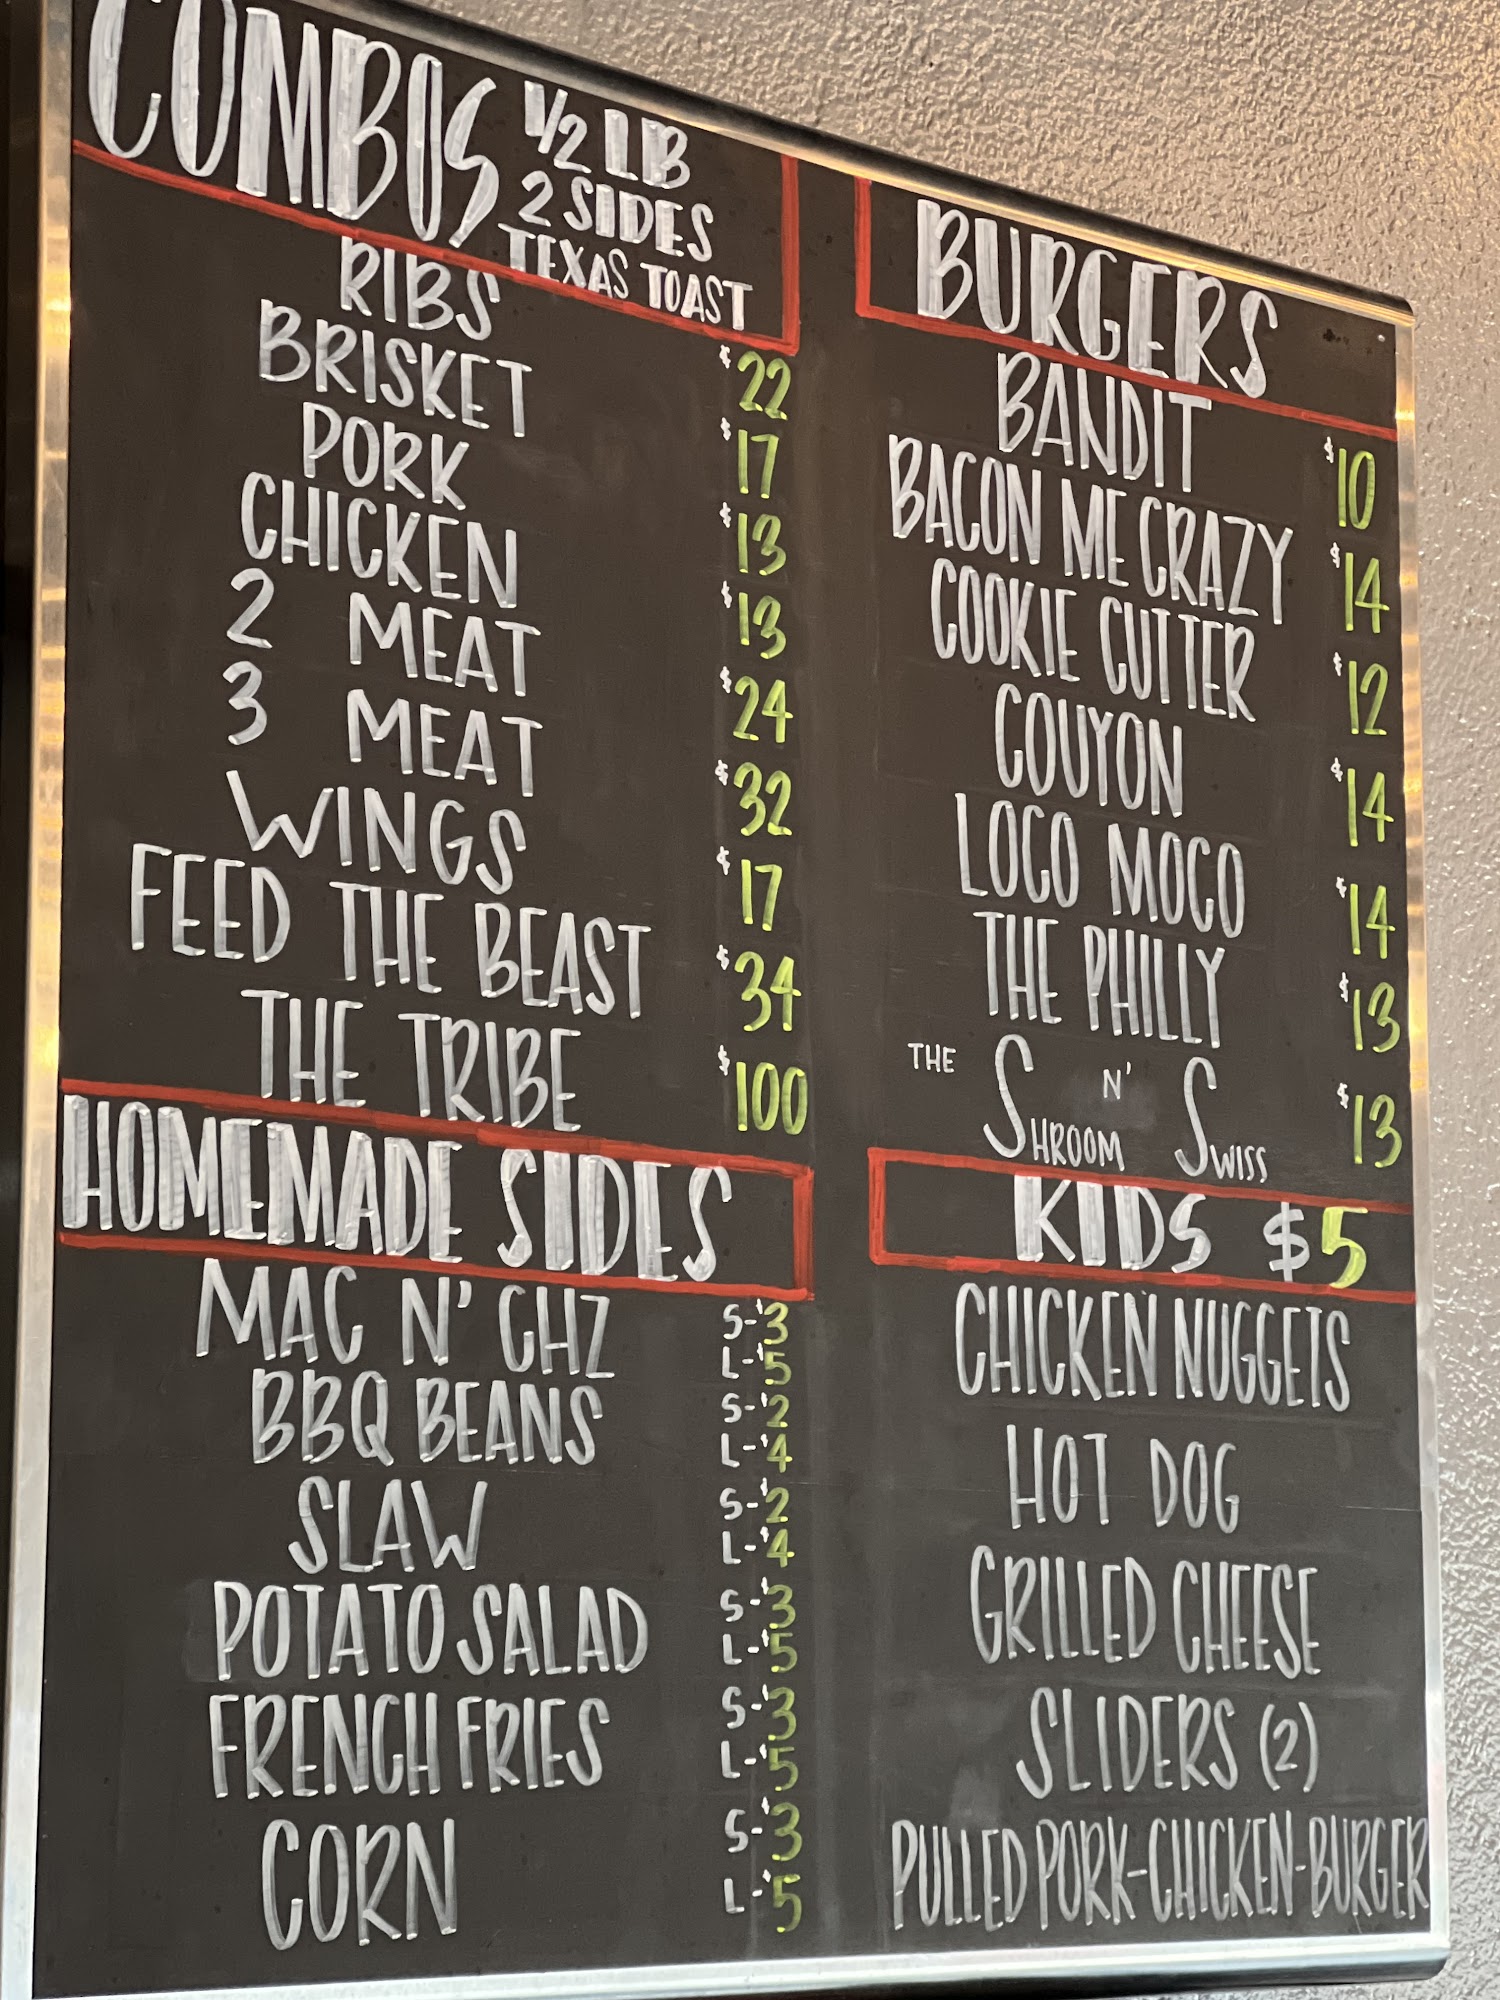 COMBOS 1/2 LB
2 SIDES
TEXAS TOAST
RIBS $22
BRISKET $17
PORK $13
CHICKEN $13
2 MEAT $24
3 MEAT $32
WINGS $17
FEED THE BEAST $34
THE TRIBE $100
HOMEMADE SIDES
MAC N' CHZ S-$3
L-$5
BBQ BEANS S-$2
L-$4
SLAW S-$2
L-$4
POTATO SALAD S-$3
L-$5
FRENCH FRIES S-$3
L-$5
CORN S-$3
L-$5
BURGERS
BANDIT $10
BACON ME CRAZY $14
COOKIE CUTTER $12
COUYON $14
LOCO MOCO $14
THE PHILLY $13
THE SHROOM N' SWISS $13
KIDS $5
CHICKEN NUGGETS
HOT DOG
GRILLED CHEESE
SLIDERS (2)
PULLED PORK-CHICKEN-BURGER